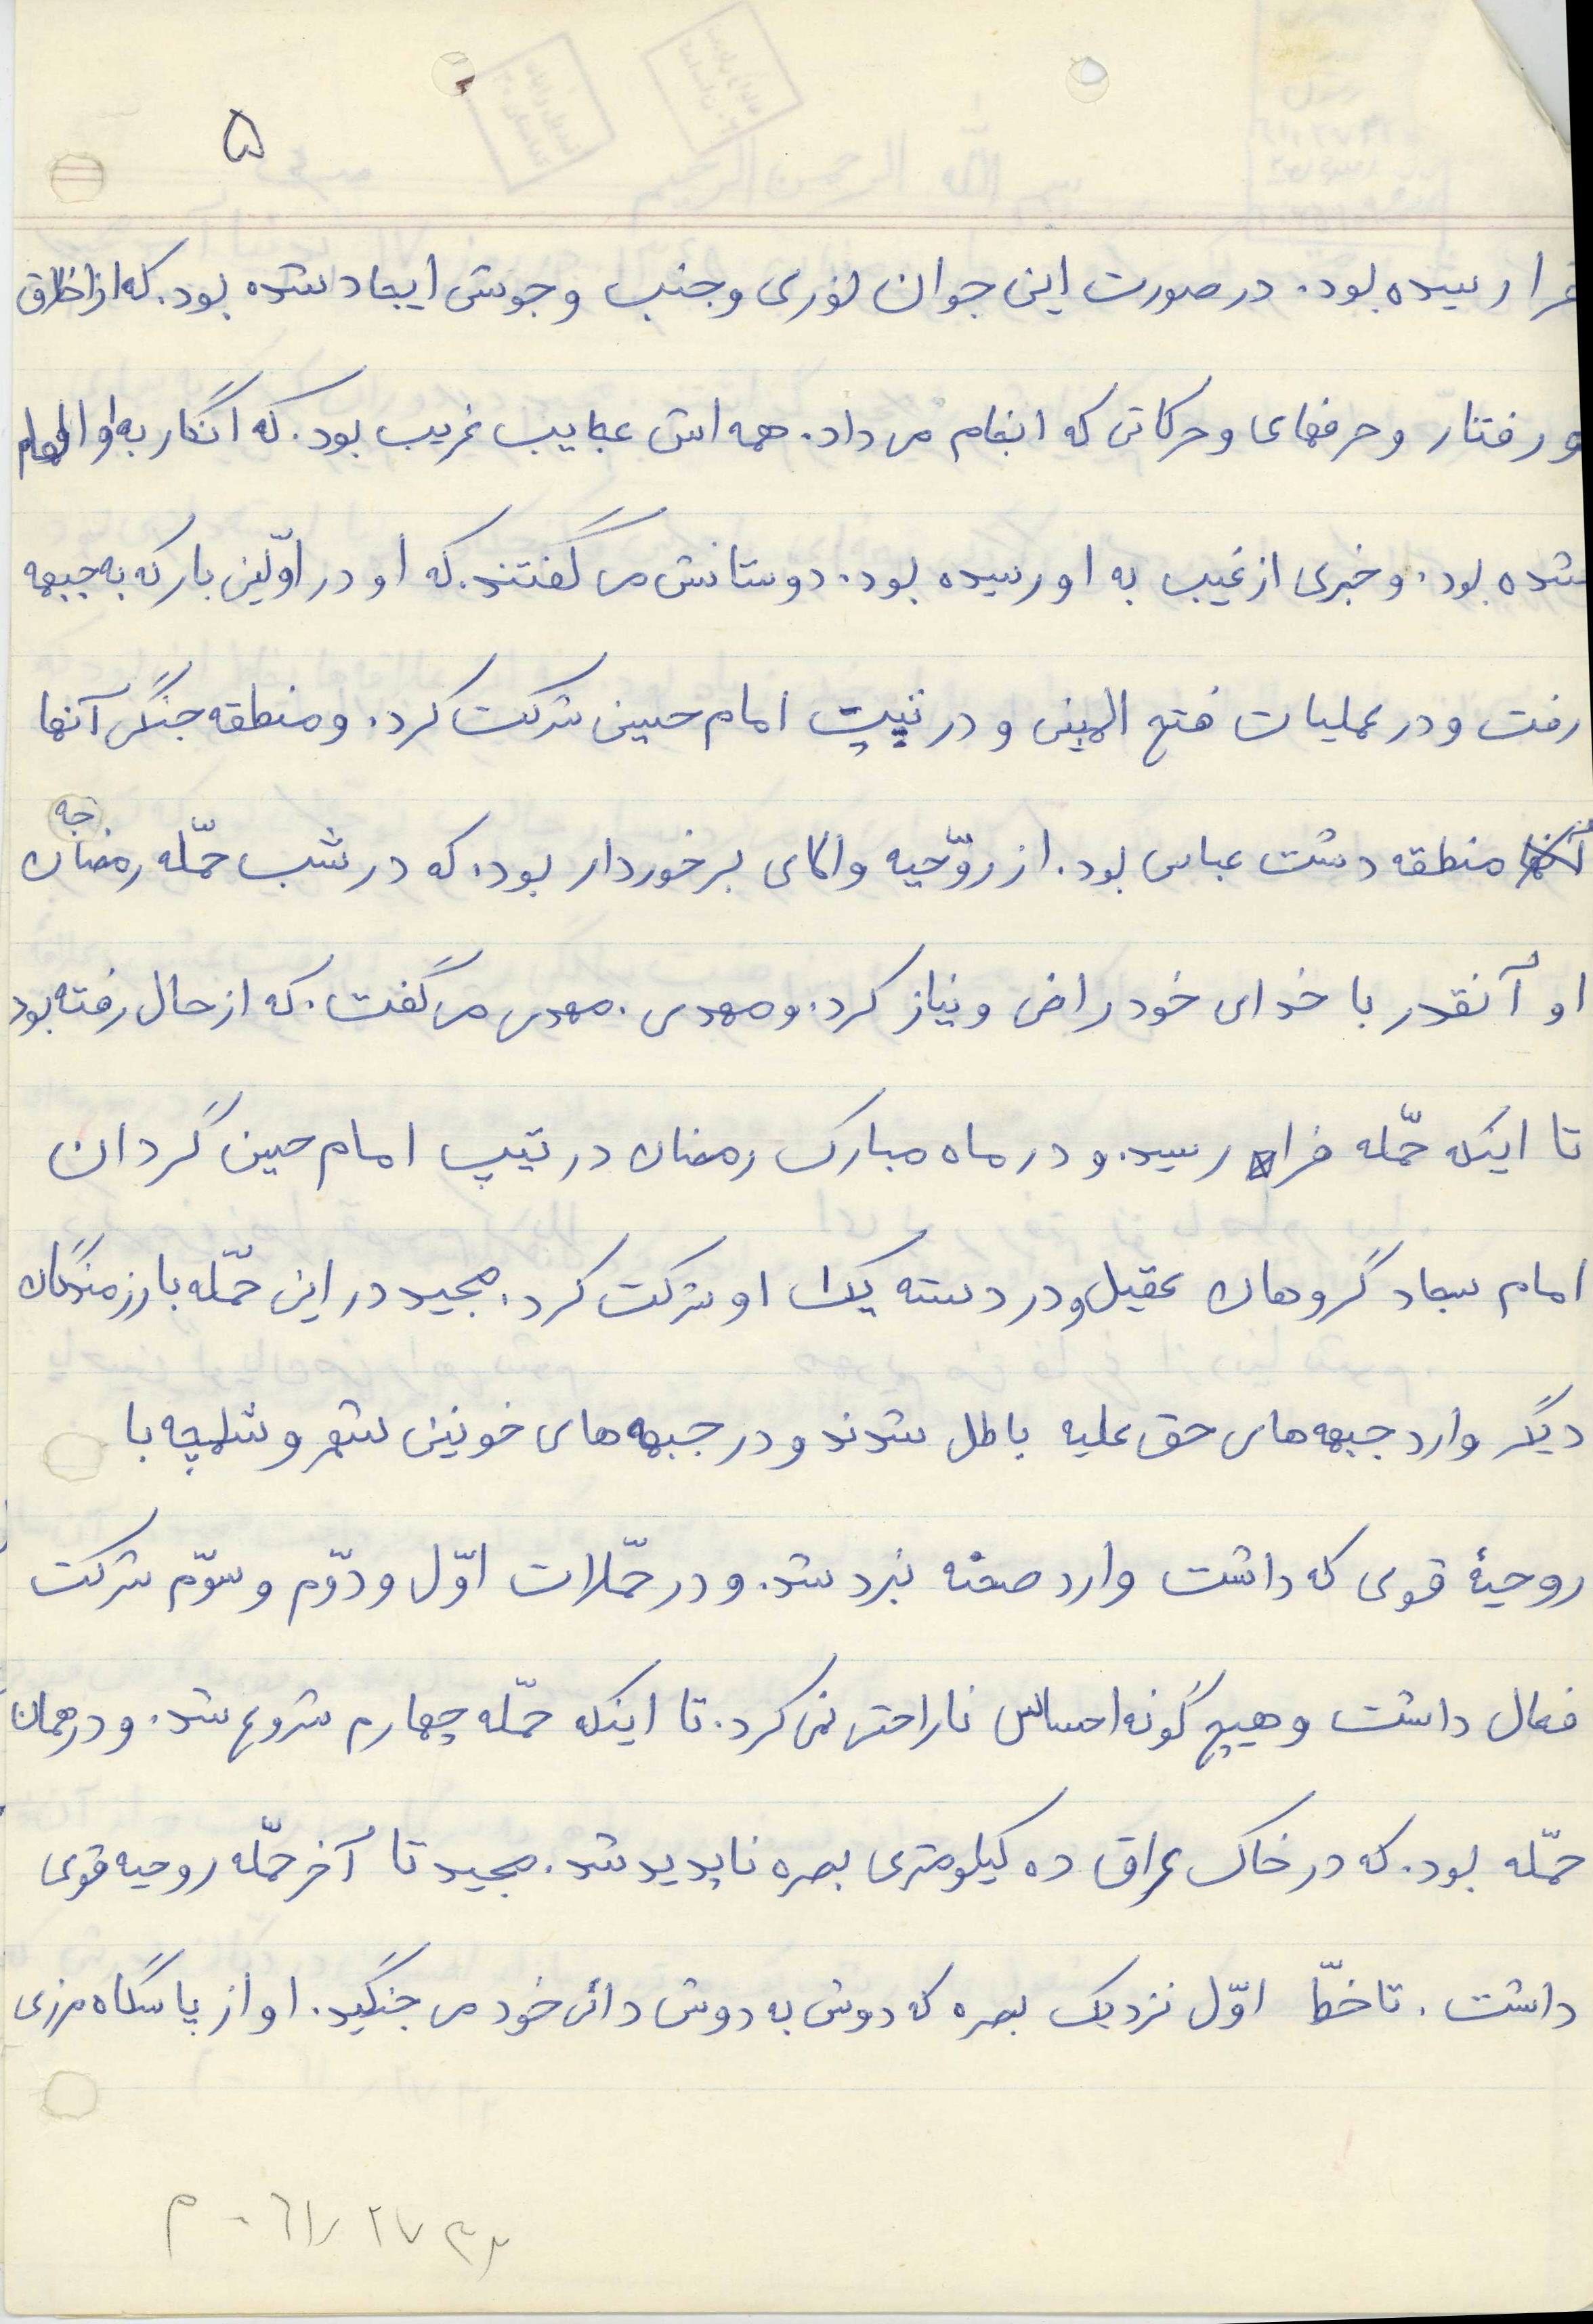 ۵
فرا رسیده بود. در صورت این جوان نوری و جنب و جوشی ایجاد شده بود. که از اخلاق
و رفتار و حرفهای و حرکاتی که انجام می داد. همه اش عجایب غریب بود. که انگار به او الهام
شده بود. و خبری از غیب به او رسیده بود. دوستانش می گفتند. که او در اوّلین بار که به جبهه
رفت و در عملیات فتح المبینی و در تیپ امام حسین شرکت کرد. و منطقه جنگی آنها
منطقه دشت عباس بود. از روّحیه والای برخوردار بود. که در شب حمّله رمضان
او آنقدر با خدای خود راض و نیاز کرد. و مهدی. مهدی می گفت. که از حال رفته بود
تا اینکه حمّله فرا رسید. و در ماه مبارک رمضان در تیپ امام حسین گردان
امام سجاد گروهان عقیل و در دسته یک او شرکت کرد. مجید در این حمّله با رزمندگان
دیگر وارد جبهه های حق علیه باطل شدند و در جبهه های خونین و شلمچه با
روحیهٔ قوی که داشت وارد صحنه نبرد شد. و در حمّلات اوّل و دوّم و سوّم شرکت
فعال داشت و هیچ گونه احساس ناراحتی نمی کرد. تا اینکه حمّله چهارم شروع شد. و در همان
حمّله بود. که در خاک عراق ده کیلومتری بصره ناپدید شد. مجید تا آخر حمّله روحیه قوی
داشت. تا خطّ اوّل نزدیک بصره که دوش به دوش دائی خود می جنگید. او از پاسگاه مرزی